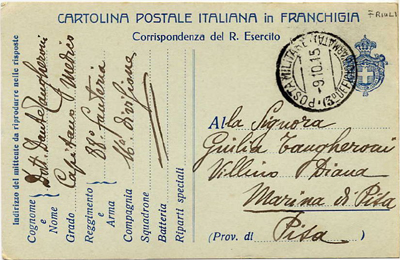 CARTOLINA POSTALE ITALIANA IN FRANCHIGIA
FRIULI
Corrispondenza del R. Esercito
POSTA MILITARE
9.10.15
Indirizzo del mittente da riprodurre nelle risposte
Cognome e Nome Dott. Dante Taugheroni
Grado Capitano Medico
Reggimento e Arma 88° Fanteria
Compagnia 16° divisione
Squadrone
Batteria
Riparti speciali
Alla Signora
Giulia Taugheroni
Villino Diana
Marina di Pisa
(Prov. di Pisa)